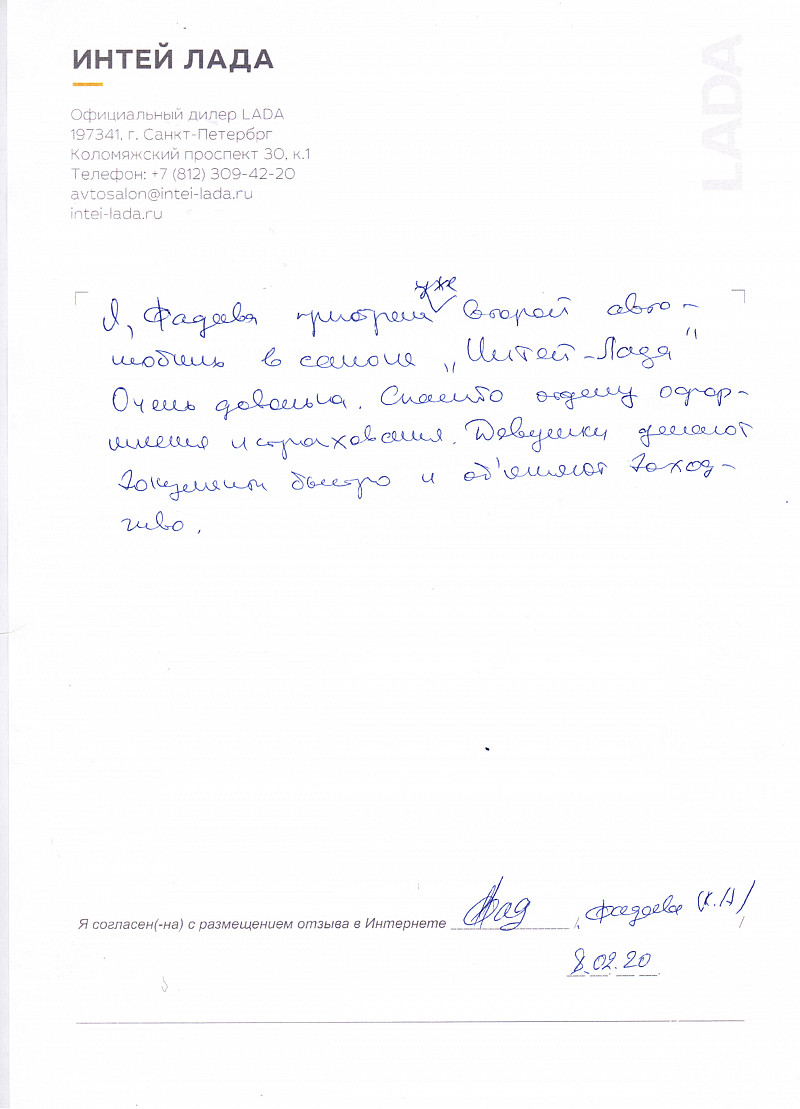 ИНТЕЙ ЛАДА
LADA
Официальный дилер LADA
197341, г. Санкт-Петербрг
Коломяжский проспект 30, к.1
Телефон: +7 (812) 309-42-20
avtosalon@intei-lada.ru
intei-lada.ru
уже
Я, Фадеева приобрела второй авто-
мобиль в салоне „Интей-Лада"
Очень довольна. Спасибо отделу офор-
мления и страхования. Девушки делают
документы быстро и об'ясняют доход-
чиво.
Я согласен(-на) с размещением отзыва в Интернете Фад, Фадеева (К.А)
8.02.20